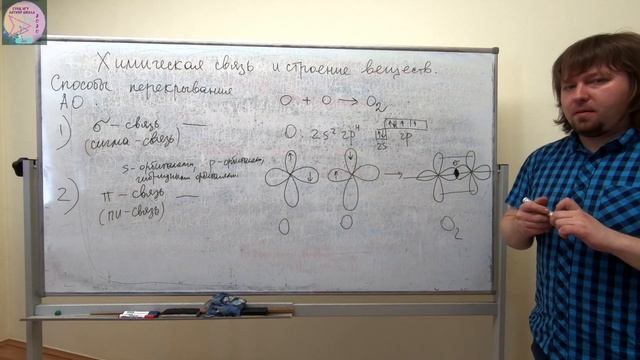 Химическая связь и строение веществ.
Способы перекрывания
АО.
1) σ – связь —
(сигма-связь)
s-орбитали, p-орбитали,
гибридные орбитали
2) π – связь —
(пи-связь)
O + O → O₂
O: 2s² 2p⁴
2s 2p
σ
O O O₂